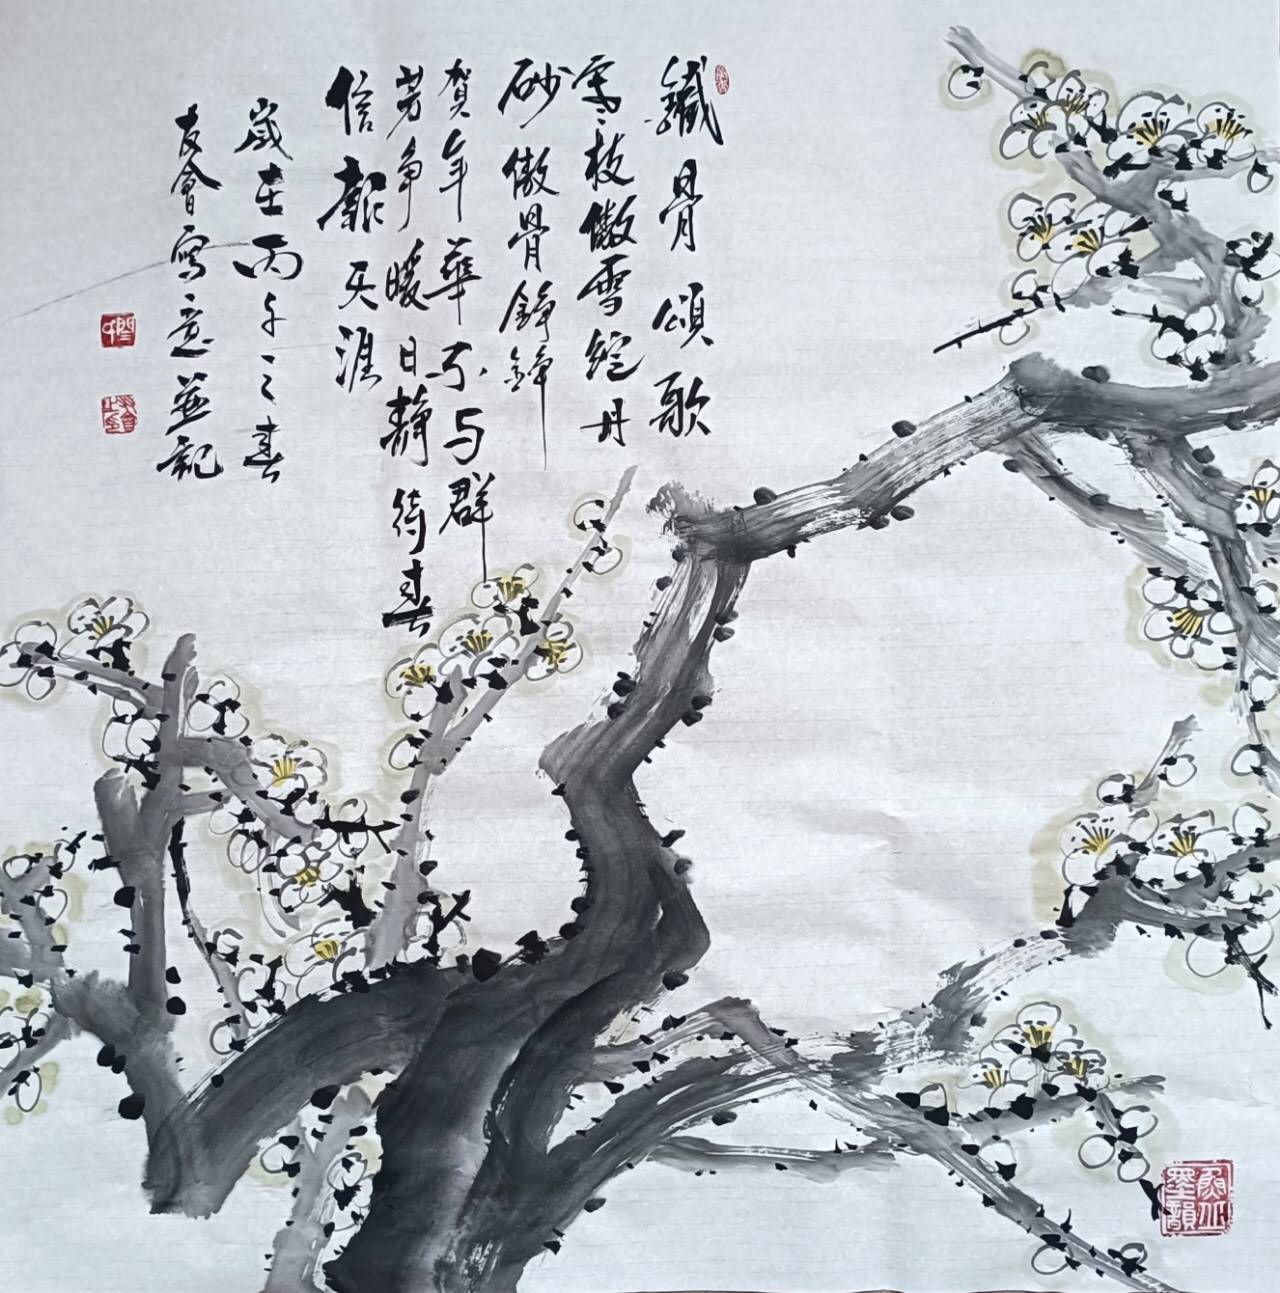 鐵骨頌歌
寒枝傲雪綻丹
砂傲骨錚錚
賀年華不与群
芳争暖日静待春
信報天涯
歲在丙午之春
友會寫意並記